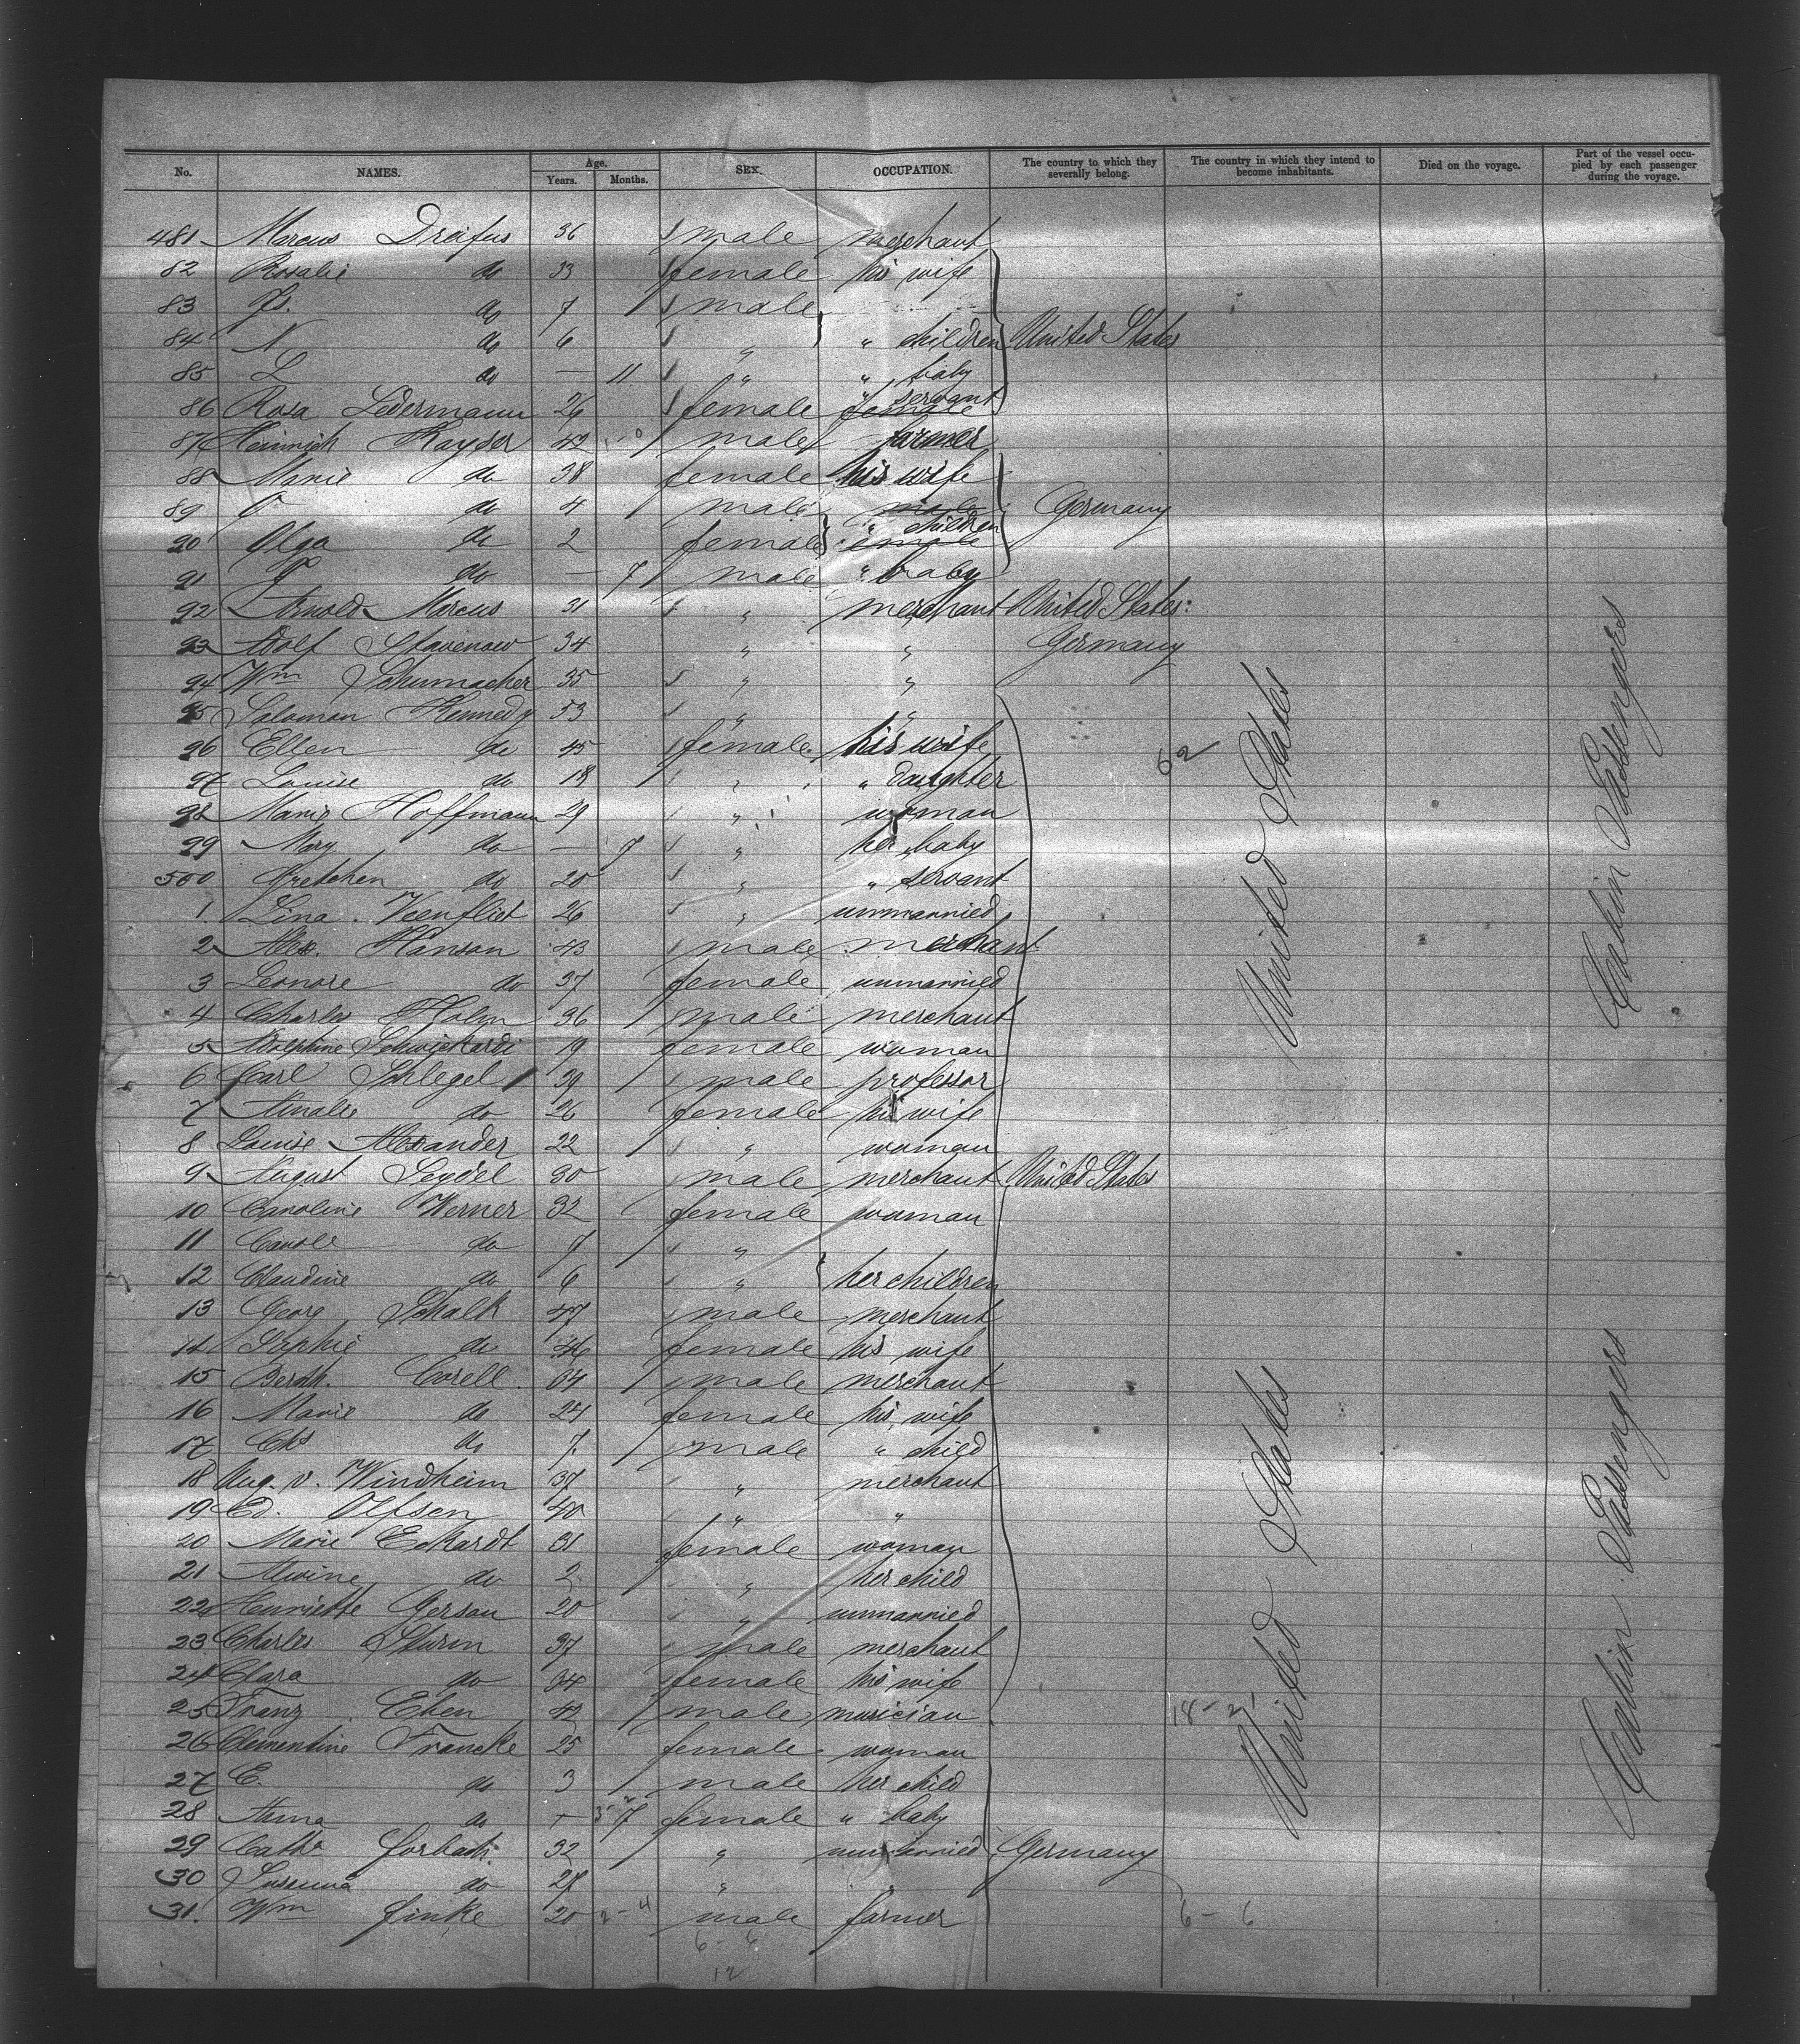 No. NAMES. Age. Years. Months. SEX. OCCUPATION. The country to which they severally belong. The country in which they intend to become inhabitants. Died on the voyage. Part of the vessel occupied by each passenger during the voyage.
481 Marcus Dreifus 36 male merchant
82 Rosalie do 33 female his wife
83 Js. do 7 male
84 N do 6 " " children United States
85 L do — 11 " " baby
86 Rosa Ledermann 26 female " servant female
87 Heinrich Kayser 42 male farmer
88 Marie do 38 female his wife
89 do 4 male male Germany
90 Olga do 2 female " children
91 do — 7 male " baby
92 Arnold Marcus 31 " merchant United States:
93 Adolf Stavenow 34 " " Germany
94 Wm Schumacher 35 " "
95 Salomon Kennedy 53 " "
96 Ellen do 45 female his wife 62
97 Louise do 18 " " daughter
98 Marie Hoffmann 29 " woman
99 Mary do — 7 " her baby
500 Gretchen do 20 " " servant
1 Lina Veenfliet 26 " unmarried
2 Alex. Hanson 43 male merchant
3 Leonore do 37 female unmarried
4 Charles Holm 36 male merchant
5 Adolphine 19 female woman
6 Carl Schlegel 39 male professor
7 Amalie do 26 female his wife
8 Louise Alexander 22 " woman
9 August Seydel 30 male merchant United States
10 Caroline Werner 32 female woman
11 Carole do 7 "
12 Claudine do 6 " her children
13 Georg Schalk 47 male merchant
14 Sophie do 46 female his wife
15 Berth. Corell 34 male merchant
16 Marie do 24 female his wife
17 Chs do 7 male " child
18 Aug. v. Windheim 37 " merchant
19 Ed. Olfsen 40 " "
20 Marie Eckardt 31 female woman
21 Alwine do 2 " her child
22 Henriette Gerson 20 " unmarried
23 Charles Sturm 37 male merchant
24 Clara do 34 female his wife
25 Franz Eben 42 male musician 18-2
26 Clementine Francke 25 female woman
27 E. do 3 male her child
28 Anna do 7 female " baby
29 Cath. Forbach 32 " unmarried Germany
30 Susanna do 27 "
31. Wm Finke 20 2-4 male farmer 6-6
6-6
12
United States
Cabin Passengers
United States
Cabin Passengers